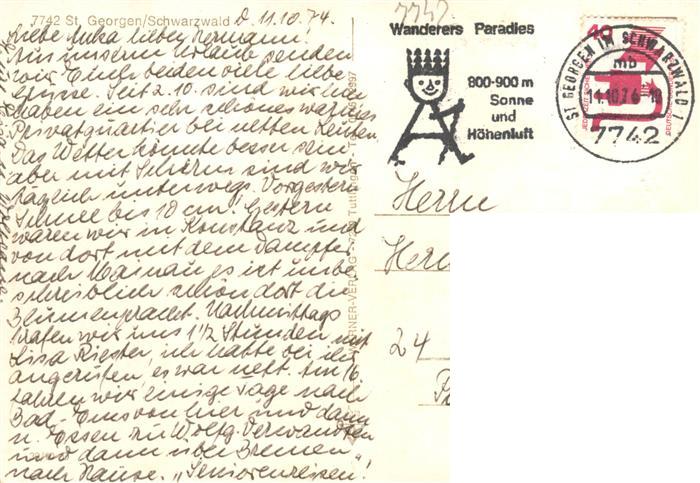 7742 St. Georgen/Schwarzwald d. 11.10.74.
Liebe Anka lieber Hermann!
Aus unserem Urlaub senden
wir Euch beiden viele liebe
Grüsse. Seit 2.10. sind wir hier
haben ein sehr schönes warmes
Privatquartier bei netten Leuten.
Das Wetter könnte besser sein
aber mit Schirm sind wir
täglich unterwegs. Vorgestern
Schnee bis 10 cm! Gestern
waren wir in Konstanz und
von dort mit dem Dampfer
nach Mainau, es ist unbe-
schreiblich schön dort die
Blumenpracht. Nachmittags
trafen wir uns 1½ Stunden mit
Lisa Riester, ich hatte bei ihr
angerufen, es war nett. Am 16.
fahren wir einige Tage nach
Bad-Ems von hier und dann
n. Essen zu Wolfg. Verwandten
und dann über Bremen
nach Hause. „Seniorenreisen"!
7742
Wanderers Paradies
800-900 m
Sonne
und
Höhenluft
40
ST GEORGEN IM SCHWARZWALD 1
mb
7742
Herrn
24